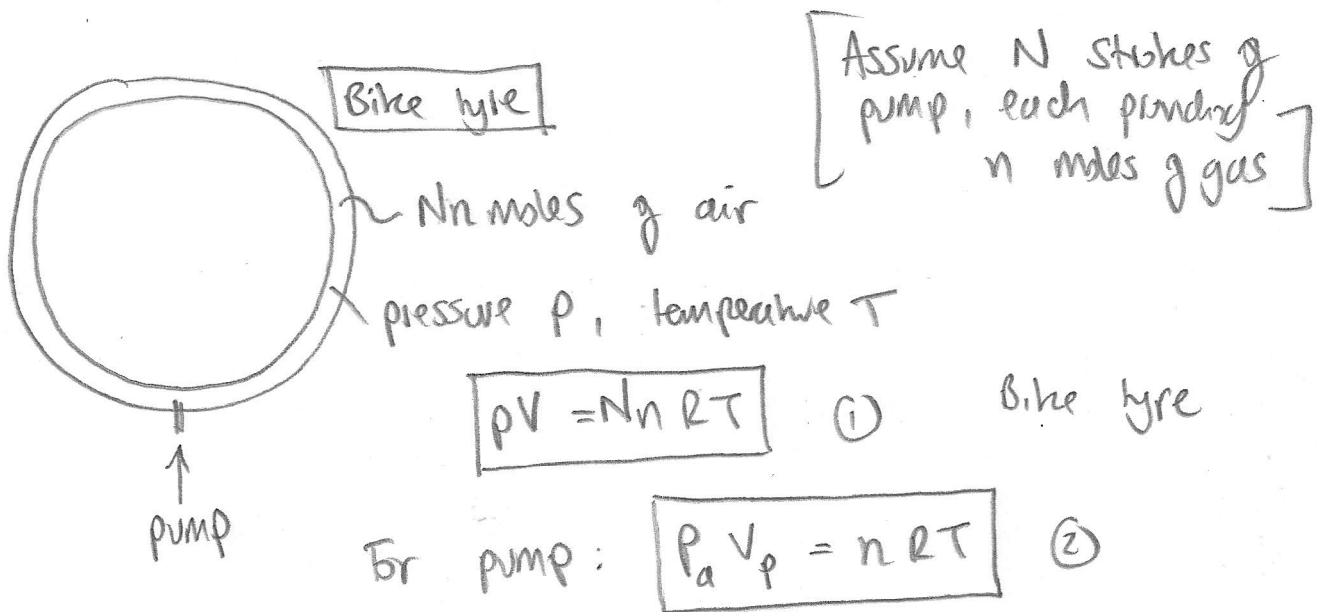 Bike tyre
[Assume N strokes of
pump, each providing
n moles of gas]
Nn moles of air
pressure p, temperature T
pV = Nn RT ① Bike tyre
pump
For pump: P_a V_p = n RT ②